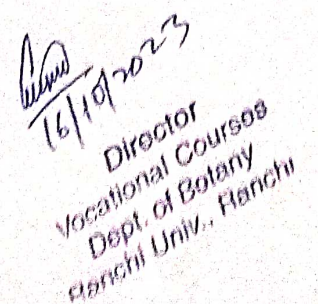 16/10/2023
Director
Vocational Courses
Dept. of Botany
Ranchi Univ., Ranchi